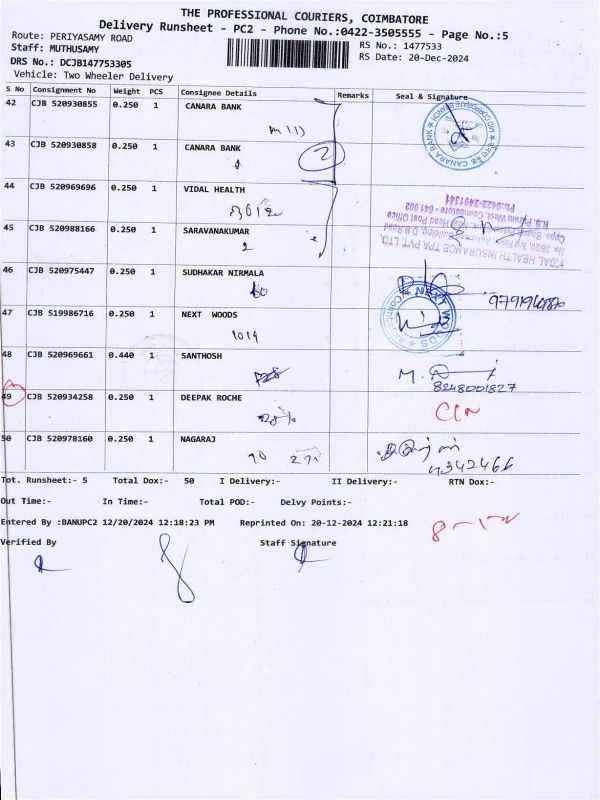 THE PROFESSIONAL COURIERS, COIMBATORE
Delivery Runsheet - PC2 - Phone No.:0422-3505555 - Page No.:5
Route: PERIYASAMY ROAD
RS No.: 1477533
Staff: MUTHUSAMY
RS Date: 20-Dec-2024
DRS No.: DCJB147753305
Vehicle: Two Wheeler Delivery
S No Consignment No Weight PCS Consignee Details Remarks Seal & Signature
42 CJB 520930855 0.250 1 CANARA BANK
CANARA BANK
43 CJB 520930858 0.250 1 CANARA BANK
2
44 CJB 520969696 0.250 1 VIDAL HEALTH
VIDAL HEALTH INSURANCE TPA PVT. LTD.
Ph:0422-2491341
45 CJB 520988166 0.250 1 SARAVANAKUMAR
2
46 CJB 520975447 0.250 1 SUDHAKAR NIRMALA
60
47 CJB 519986716 0.250 1 NEXT WOODS
NEXT WOODS
1014
48 CJB 520969661 0.440 1 SANTHOSH
8248001827
49 CJB 520934258 0.250 1 DEEPAK ROCHE
50 CJB 520978160 0.250 1 NAGARAJ
90
Tot. Runsheet:- 5 Total Dox:- 50 I Delivery:- II Delivery:- RTN Dox:-
Out Time:- In Time:- Total POD:- Delvy Points:-
Entered By :BANUPC2 12/20/2024 12:18:23 PM Reprinted On: 20-12-2024 12:21:18
Verified By Staff Signature